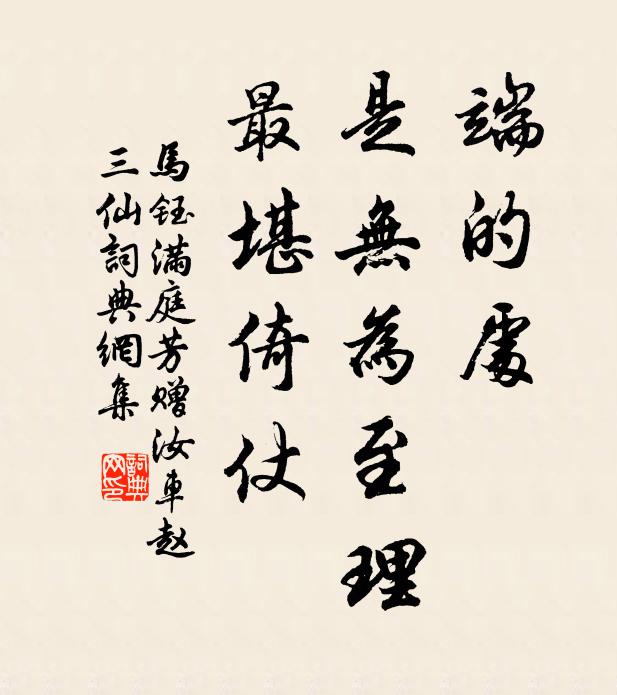 端的處
是無為至理
最堪倚仗
馬鈺滿庭芳赠汝車赵
三仙詞典網集
詞典
网印